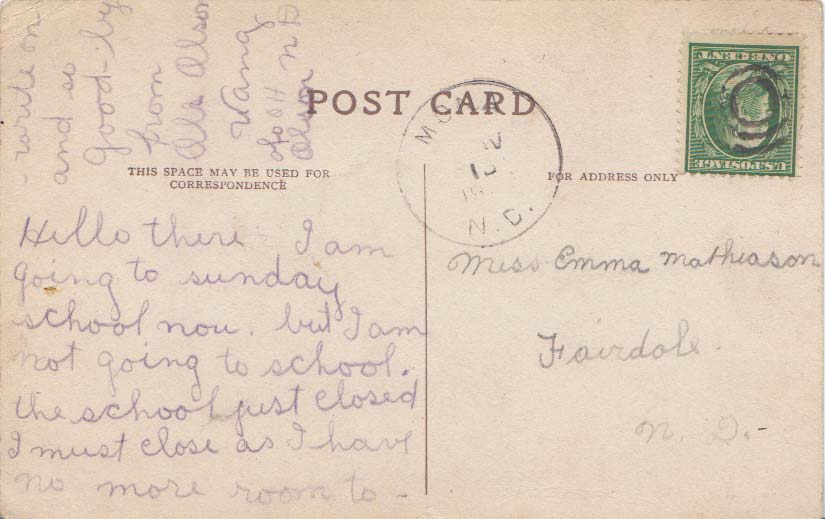 POST CARD
THIS SPACE MAY BE USED FOR
CORRESPONDENCE
FOR ADDRESS ONLY
U.S. POSTAGE
ONE CENT
N.D.
Hello there I am
going to sunday
school now. but I am
not going to school.
the school just closed
I must close as I have
no more room to -
- write on
and so
good-by
from
Ole Olson
Wang
N D
Olson
Miss Emma Mathiason
Fairdale.
N. D.-